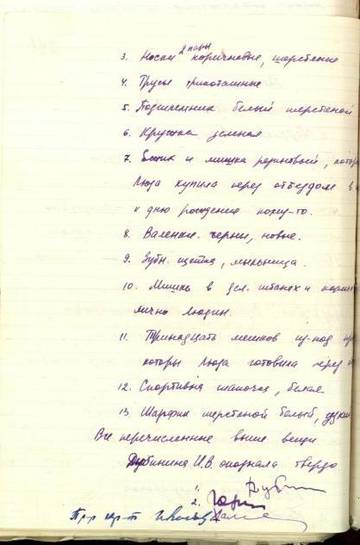 2 пары
3. Носки коричневые, шерстение
4. Трусы трикотажные
5. Подшлемник белый шерстеной
6. Кружка зеленая
7. и мишка резиновый, котор
Люда купила перед отъездом в
к дню рождение кому-то.
8. Валенки черные, новые.
9. Зубн. щетка, мыльница.
10. Мишка в зел. штанах и
лично Людин.
11. Тринадцать мешков из-под
которы Люда готовила перед
12. Спортивная шапочка, белая
13 Шарфик шерстеной белый,
Все перечисленные выше вещи
Дубинина И.В. опознала твердо
1. Дуб
2.